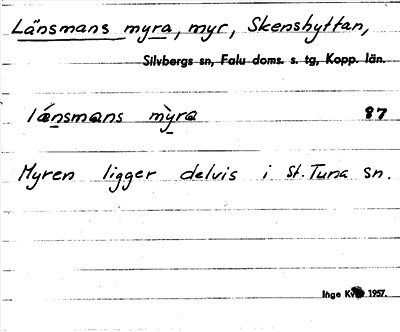 Länsmans myra, myr, Skenshyttan,
Silvbergs sn, Falu doms. s. tg, Kopp. län.
lánsmans mỳra 87
Myren ligger delvis i St. Tuna sn.
Inge 1957.